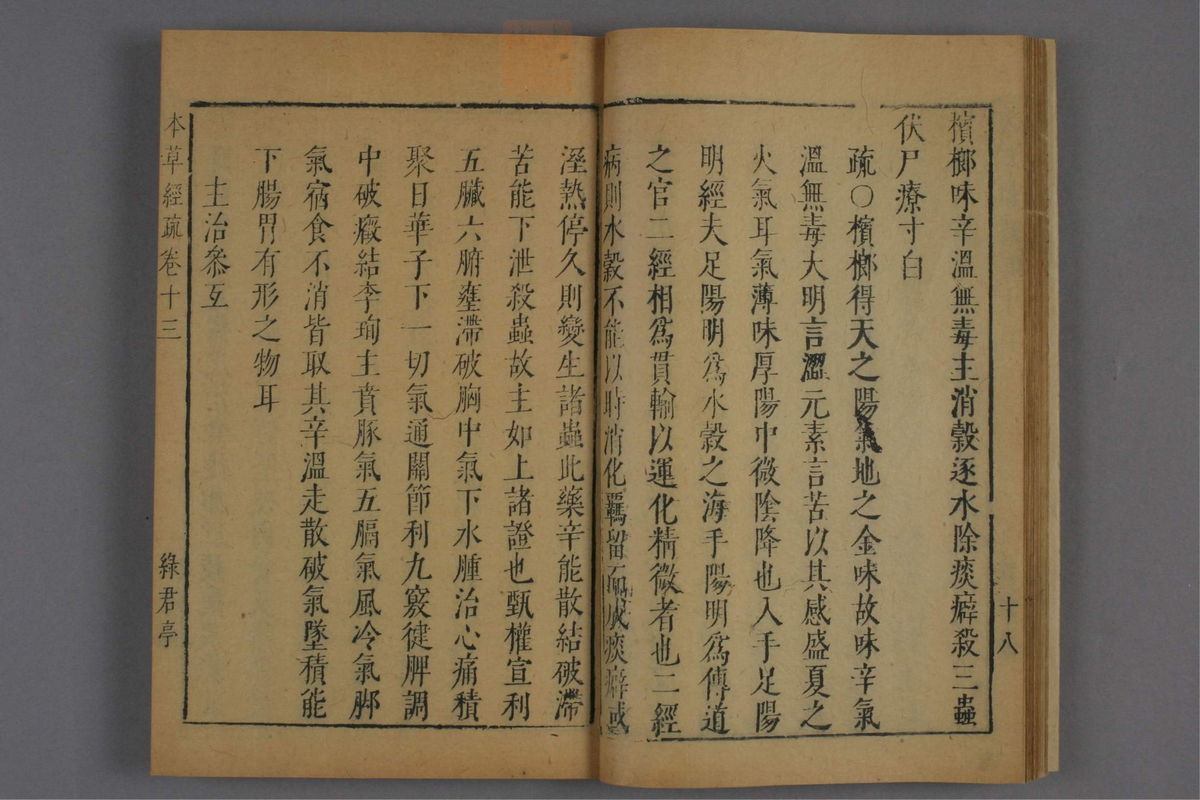 十八
檳榔味辛溫無毒主消穀逐水除痰癖殺三蟲
伏尸療寸白
疏○檳榔得天之陽氣地之金味故味辛氣
溫無毒大明言澀元素言苦以其感盛夏之
火氣耳氣薄味厚陽中微陰降也入手足陽
明經夫足陽明爲水穀之海手陽明爲傳道
之官二經相爲貫輸以運化精微者也二經
病則水穀不能以時消化羈留而成痰癖或
溼熱停久則變生諸蟲此藥辛能散結破滯
苦能下泄殺蟲故主如上諸證也甄權宣利
五臟六腑壅滯破胸中氣下水腫治心痛積
聚日華子下一切氣通關節利九竅健脾調
中破癥結李珣主賁豚氣五膈氣風冷氣脚
氣宿食不消皆取其辛溫走散破氣墜積能
下腸胃有形之物耳
主治叅互
本草經疏卷十三
綠君亭